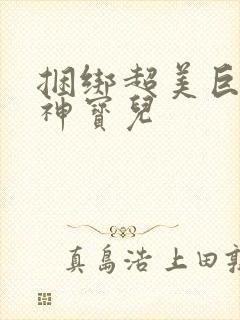 捆绑超美巨
神寳兒
真島浩上田敦